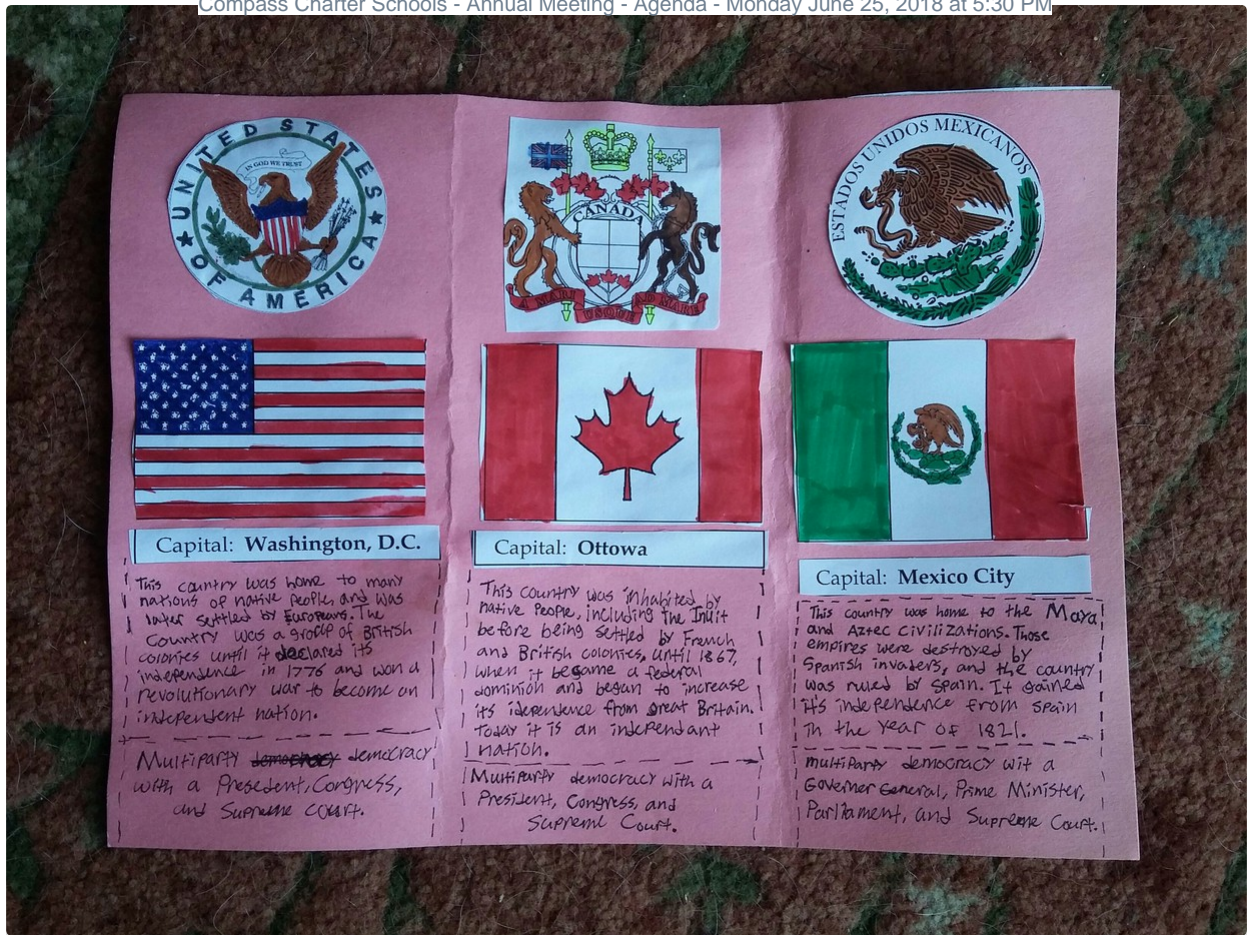 Compass Charter Schools - Annual Meeting - Agenda - Monday June 25, 2018 at 5:30 PM
UNITED STATES
OF AMERICA
IN GOD WE TRUST
Capital: Washington, D.C.
This country was home to many
nations of native peoples and was
later settled by Europeans. The
Country was a group of British
colonies until it declared its
independence in 1776 and won a
revolutionary war to become an
independent nation.
Multiparty democracy democracy
with a Presedent, Congress,
and Supreme Court.
CANADA
A MARI USQUE AD MARE
Capital: Ottowa
This country was inhabited by
native People, including the Inuit
before being settled by French
and British colonies, until 1867,
when it became a federal
dominion and began to increase
its idependence from great Britain.
Today it is an independant
nation.
Multiparty democracy with a
President, Congress, and
Supreme Court.
ESTADOS UNIDOS MEXICANOS
Capital: Mexico City
This country was home to the Maya
and Aztec civilizations. Those
empires were destroyed by
Spanish invaders, and the country
was ruled by spain. It gained
it's independence from spain
in the year of 1821.
multiparty democracy wit a
Governer General, Prime Minister,
Parliament, and Supreme Court.